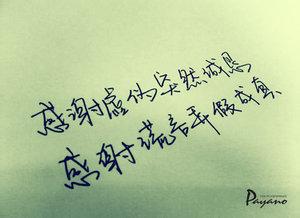 感谢虚伪突然诚恳
感谢谎言弄假成真
Payano